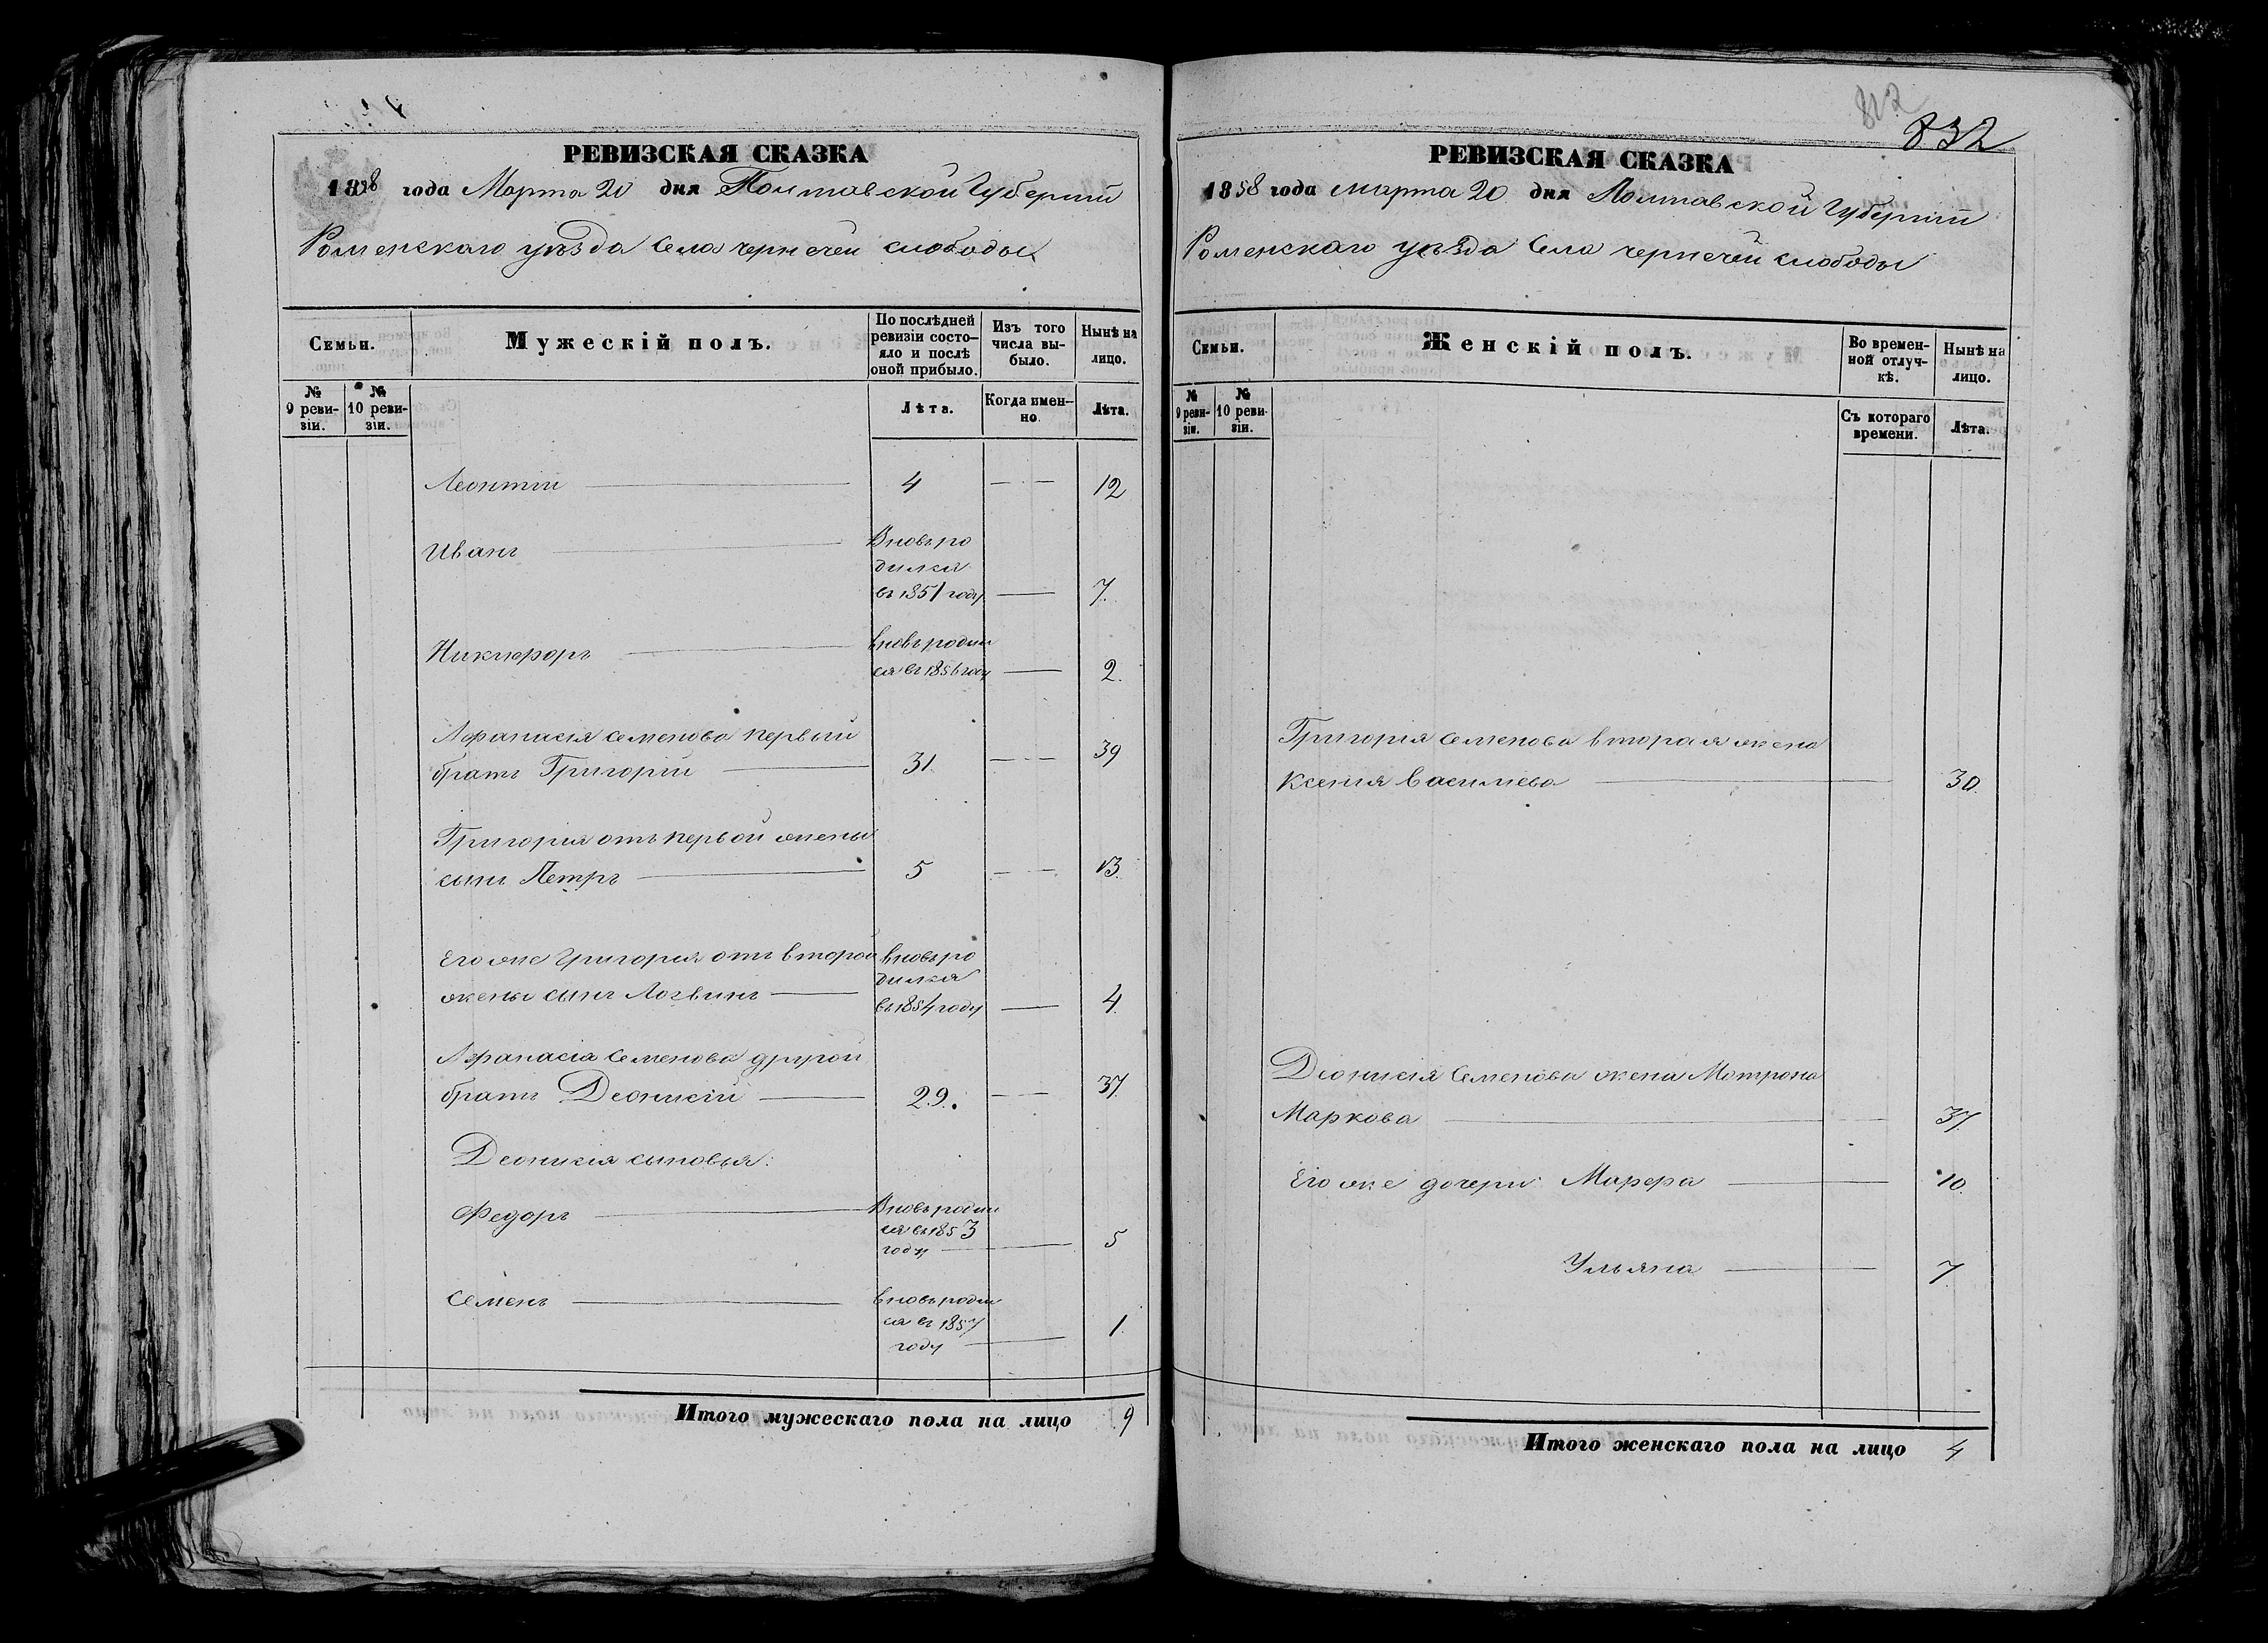 РЕВИЗСКАЯ СКАЗКА
1858 года Марта 20 дня Полтавской Губерніи
Роменскаго уѣзда Села Чернечей слободы
Семьи.
Мужескій полъ.
По послѣдней ревизіи состо-яло и послѣ оной прибыло.
Изъ того числа вы-было.
Нынѣ на лицо.
№ 9 реви-зіи.
№ 10 реви-зіи.
Лѣта.
Когда имен-но.
Лѣта.
Леонтій 4 12
Иванъ
Вновь ро
дился
въ 1851 году 7.
Никифоръ
вновь родил
ся въ 1856 году 2.
Афанасія Семенова первый
братъ Григорій 31. 39
Григорія отъ первой жены
сынъ Петръ 5 13.
Его же Григорія отъ второй
жены сынъ Логвинъ
вновь ро
дился
въ 1854 году 4.
Афанасія Семенова другой
братъ Деонисій 29. 37.
Деонисія сыновья:
Федоръ
Вновь родил
ся въ 1853
году 5
Семенъ
вновь родил
ся въ 1857
году 1.
Итого мужескаго пола на лицо 9
812
832
РЕВИЗСКАЯ СКАЗКА
1858 года марта 20 дня Полтавской Губерніи
Роменскаго уѣзда Села Чернечей слободы
Семьи.
Женскій полъ.
Во времен-ной отлуч-кѣ.
Нынѣ на лицо.
№ 9 реви-зіи.
№ 10 реви-зіи.
Съ котораго времени.
Лѣта.
Григорія Семенова вторая жена
Ксенія Васильева 30.
Діонисія Семенова жена Мотрона
Маркова 37.
Его же дочери: Марфа 10.
Ульяна 7
Итого женскаго пола на лицо 4